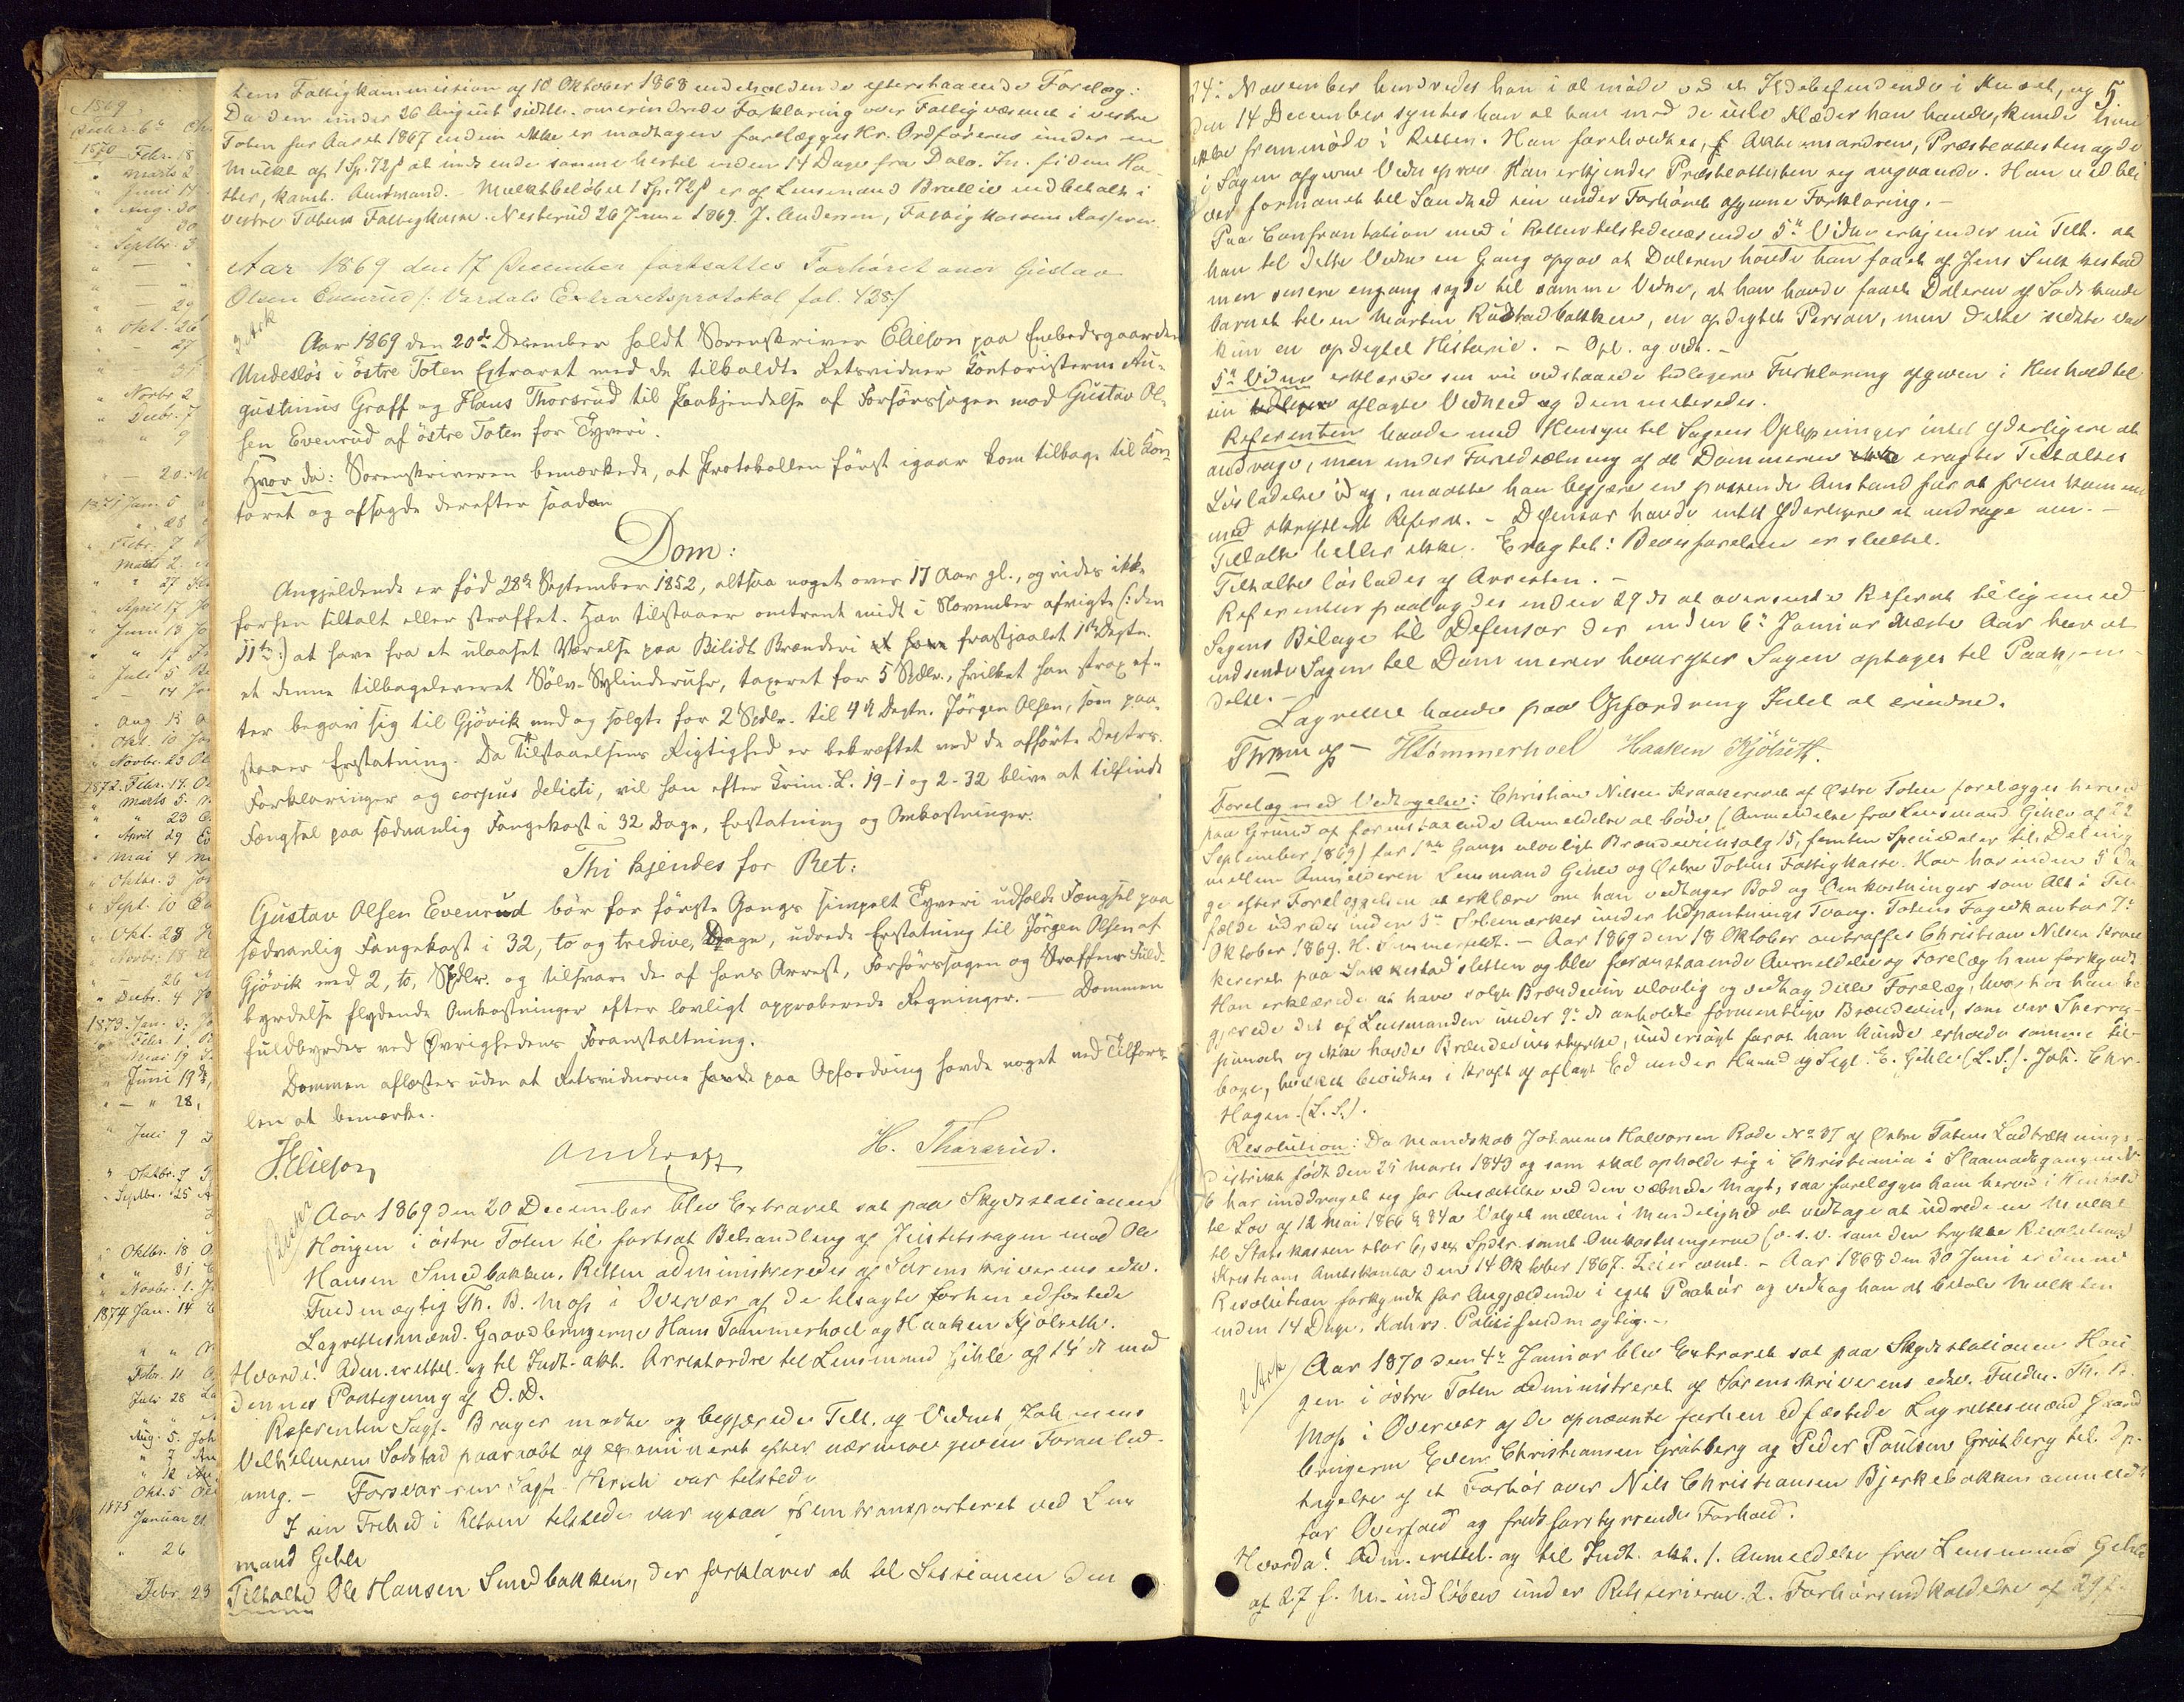 1869
1870 Febr. 18
" Marts 2
" Juni 17
" Aug. 30
" Septbr. 3
" Okt. 26
" Novbr 2
" Decbr. 7
" " 9
1871 Jan. 5
" " 28
Febr. 7
Marts 2
" " 27
" April 17
" Juni 13
" Juli 5
" — 14
" Aug 15
" Okt. 10
" Novbr. 23
1872. Febr. 14
" Marts 5.
" " 23
" April 29
" Mai 4
" Oktbr. 3
" Sept. 10
" Okt. 28
" Novbr: 18
" — 26
" Decbr. 4
1873. Jan. 3.
" Febr. 1
" Mai 19
" Juni 19de
" — " 28,
" Juli 9
" Oktbr. 3
" Septbr. 25
" Oktbr. 18
" " 31
" Novbr. 1.
1874 Jan. 14
Febr. 11
Juli 28
Aug. 5.
" 7
" 12
Okt. 5
1875
Januar 21
" 26
Febr. 23
tens Fattigkommission af 10 Oktober 1868 indeholdende efterstaaende Forelæg:
Da den under 26 August sidstl. omerindrede Forklaring over Fattigvæsenet i vestre
Toten for Aaret 1867 endnu ikke er modtagen forelægges Hr. Ordføreren under en
Mulkt af 1 Sp. 72 ß at indsende samme hertil inden 14 Dage fra Dato. In fidem Ho-
ther, konst. Amtmand. - Mulktbeløbet 1 Sp. 72 ß er af Lensmand Brattlie indbetalt i
vestre Totens Fattigkasse. Nesterud 26 Juni 1869. J. Andersen, Fattigkassens Kasserer.
Aar 1869 den 17 December fortsattes Forhøret over Gustav
Olsen Evenrud /: Vardals Extraretsprotokol fol. 428:/
2 Ark
Aar 1869 den 20de December holdt Sorenskriver Elieson paa Embedsgaarden
Undeslös i östre Toten Extraret med de tilkaldte Retsvidner Kontoristerne Au-
gustinus Graff og Hans Thorsrud til Paakjendelse af Forhörssagen mod Gustav Ol-
sen Evenrud af östre Toten for Tyveri.
Hvor da: Sorenskriveren bemærkede, at Protokollen först igaar kom tilbage til Kon-
toret og afsagde derefter saadan
Dom:
Angjeldende er föd 28de September 1852, altsaa noget over 17 Aar gl., og vides ikke
forhen tiltalt eller straffet. Han tilstaaer omtrent midt i November afvigte /: den
11te :/ at have fra et ulaaset Værelse paa Bilidt Brænderi frastjaalet 1ste Deptn.
et denne tilbageleveret Sölv-Sylinderuhr, taxeret for 5 Spdlr., hvilket han strax ef-
ter begav sig til Gjövik med og solgte for 2 Spdlr. til 4de Deptn. Jörgen Olsen, som paa-
staaer Erstatning. Da Tilstaaelsens Rigtighed er bekræftet ved de afhörte Deptrs.
Forklaringer og corpus delicti, vil han efter Krim. L. 19-1 og 2-32 blive at tilfinde
Fængsel paa sædvanlig Fangekost i 32 Dage, Erstatning og Omkostninger.
Thi kjendes for Ret:
Gustav Olsen Evenrud bör for förste Gangs simpelt Tyveri udholde Fængsel paa
sædvanlig Fangekost i 32, to og tredive, Dage, udrede Erstatning til Jörgen Olsen af
Gjövik med 2, to, Spdlr. og tilsvare de af hans Arrest, Forhörssagen og Straffens Fuld-
byrdelse flydende Omkostninger efter lovligt approberede Regninger. — Dommen
fuldbyrdes ved Øvrighedens Foranstaltning.
Dommen aflæstes uden at Retsvidnerne paa Opfordring havde noget ved Tilfors-
len at bemærke.
J. Elieson H. Thorsrud.
Aar 1869 den 20 December blev Extraret sat paa Skydsstationen
Hougen i östre Toten til fortsat Behandling af Justitssagen mod Ole
Hansen Smedbakken. Retten administreredes af Sorenskriverens edsv.
Fuldmægtig Th. B. Moss i Overvær af de tilsagte forhen edfæstede
Lagrettesmænd Gaardbrugerne Hans Tømmerhoel og Haaken Kjölseth.
Hvorda: Adm. irettel. og til Indt. akt. Arrestordre til Lensmand Gihle af 14 ds med
dennes Paategning af D. D.
Referenten Sagf. Brager mødte og begjærede Tilt. og Vidnet Johannes
Vilhelmsens Sodstad paaraabt og examineret efter nærmere given Foranled-
ning. - Forsvareren Sagf. Hersch var tilstede
I sin Frihed i Retten tilstede var ogsaa fremtransporteret ved Lens
mand Gihle
Tiltalte Ole Hansen Smedbakken, der forklarer at til Sessionen den
5.
24: November hindredes han i at møde ved et Ildebefindende i Huset, og
den 14 December syntes han at han med de usle Klæder han havde, kunde han
ikke fremmöde i Retten. Han foreholdtes, Attesmordren, Præsteattesten og de
i Sagen afgivne Vidnesprov. Han erkjender Præsteattesten sig angaaende. Han vedbli
ver formanet til Sandhed sin under Forhöret afgivne Forklaring. -
Paa Confrontation med i Retten tilstedeværende 5te Vidne erkjender nu Tilt. at
han til dette Vidne en Gang opgav at Daleren havde han faaet af Jens
men senere engang sagde til samme Vidne, at han havde faaet Daleren af
barnet til en Morten Rudstadbakken, en opdigtet Person, men dette sidste var
kun en opdigtet Historie. - Opl. og vedt. -
5te Vidne erklærede sin nu vedstaaede tidligere Forklaring afgiven i Henhold til
sin aflagte Vidneed og dem .
Referenten havde med Hensyn til Sagens Oplysninger intet yderligere at
andrage, men under Forudsætning af at Dommeren eragter Tiltaltes
Lösladelse idag, maatte han begjære en passende Anstand for at fremkomme
med skriftlig Referat. - Defensor havde intet yderligere at andrage om. -
Tiltalte heller ikke. Eragtet: Bevisførelsen er sluttet.
Tiltalte löslades af Arresten. -
Referenten paalagdes inden 29 ds at oversende Referat tilligemed
Sagens Bilage til Defensor der inden 6te Januar næste Aar har at
indsende Sagen til Dommeren hvorefter Sagen optages til Paakjen-
delse. -
Lagrettet havde paa Opfordring Intet at erindre.
Th B Moss - H Tömmerhoel Haaken Kjölseth.
Forelæg med Vedtagelse: Christian Nilsen Kraakererud af Østre Toten forelægges herved
paa Grund af foranstaaende Anmeldelse at böde (Anmeldelse fra Lensmand Gihle af 22
September 1869) for 1ste Gangs ulovligt Brændevinssalg 15, femten Speciedaler til Deling
mellem Anmelderen Lensmand Gihle og Østre Totens Fattigkasse. Han har inden 5 Da
ge efter Forelæggelsen at erklære om han vedtager Bod og Omkostninger som Alt i Til-
fælde udredes inden 3de Solemærker under Udpantnings Tvang. Totens Fogedkontor 7de
Oktober 1869. H. . - Aar 1869 den 18 Oktober antraffes Christian Nilsen Kraa
kererud paa Lukkestadsletten og blev foranstaaende Anmeldelse og Forelæg ham forkyndt
Han erklærede at have solgt Brændevin ulovlig og vedtog dette Forelæg, hvorhos han be
gjærede det af Lensmanden under 9de ds anholdte formentlige Brændevin, som var Sherry-
punsch og ikke havde Brændevinsstyrke, undersögt for at han kunde erholde samme til-
bage, hvilket bevidnes i Kraft af aflagt Ed under Haand og Segl. E. Gihle (L. S.). Joh. Chr.
Hagen. (L. S.).
Resolution: Da Mandskab Johannes Halvorsen Rode No 37 af Østre Totens Ludtrækninges-
distrikt født den 25 Marts 1843 og som skal opholde sig i Christiania i Slaamodtgangen No
6 har unddraget sig for Ansættelse ved den væbnede Magt, saa forelægges ham herved i Henhold
til Lov af 12 Mai 1866 § 84a Valget mellem i Mindelighed at vedtage at udrede en Mulkt
til Statskassen stor 6, sex Spdlr. samt Omkostningerne (o. s. v. som den trykte Resolution)
Kristians Amtskontor den 14 Oktober 1867. . - Aar 1868 den 30 Juni er denne
Resolution forkyndt for Angjældende i eget Paahör og vedtog han at betale Mulkten
inden 14 Dage. Kahrs. Politifuldmægtig. -
2 Ark
Aar 1870 den 4de Januar blev Extraret sat paa Skydsstationen Hou
gen i östre Toten administreret af Sorenskriverens edsv. Fuldm. Th. B.
Moss i Overvær af de opnævnte forhen edfæstede Lagrettesmænd Gaard
brugerne Even Christiansen Gråtberg og Peder Poulsen Gråtberg til Op-
tagelse af et Forhör over Nils Christiansen Bjerkebakken anmeldt
for Overfald og fredsforstyrrende Forhold.
Hvorda: Adm. irettel. og til Indt. akt. 1. Anmeldelse fra Lensmand Gihle
af 27 f. M. indløben under Retsferierne. 2. Forhörsindkaldelse af 29 f.